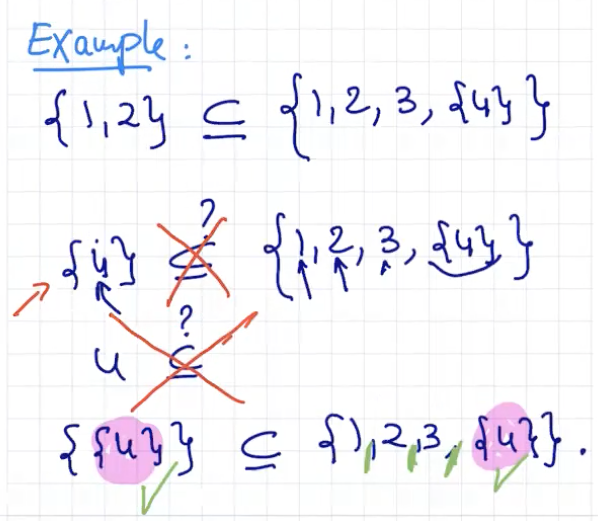 Example:
{1,2} ⊆ {1, 2, 3, {4}}
{4} ⊆? {1, 2, 3, {4}}
4 ⊆?
{{4}} ⊆ {1,2,3, {4}}.